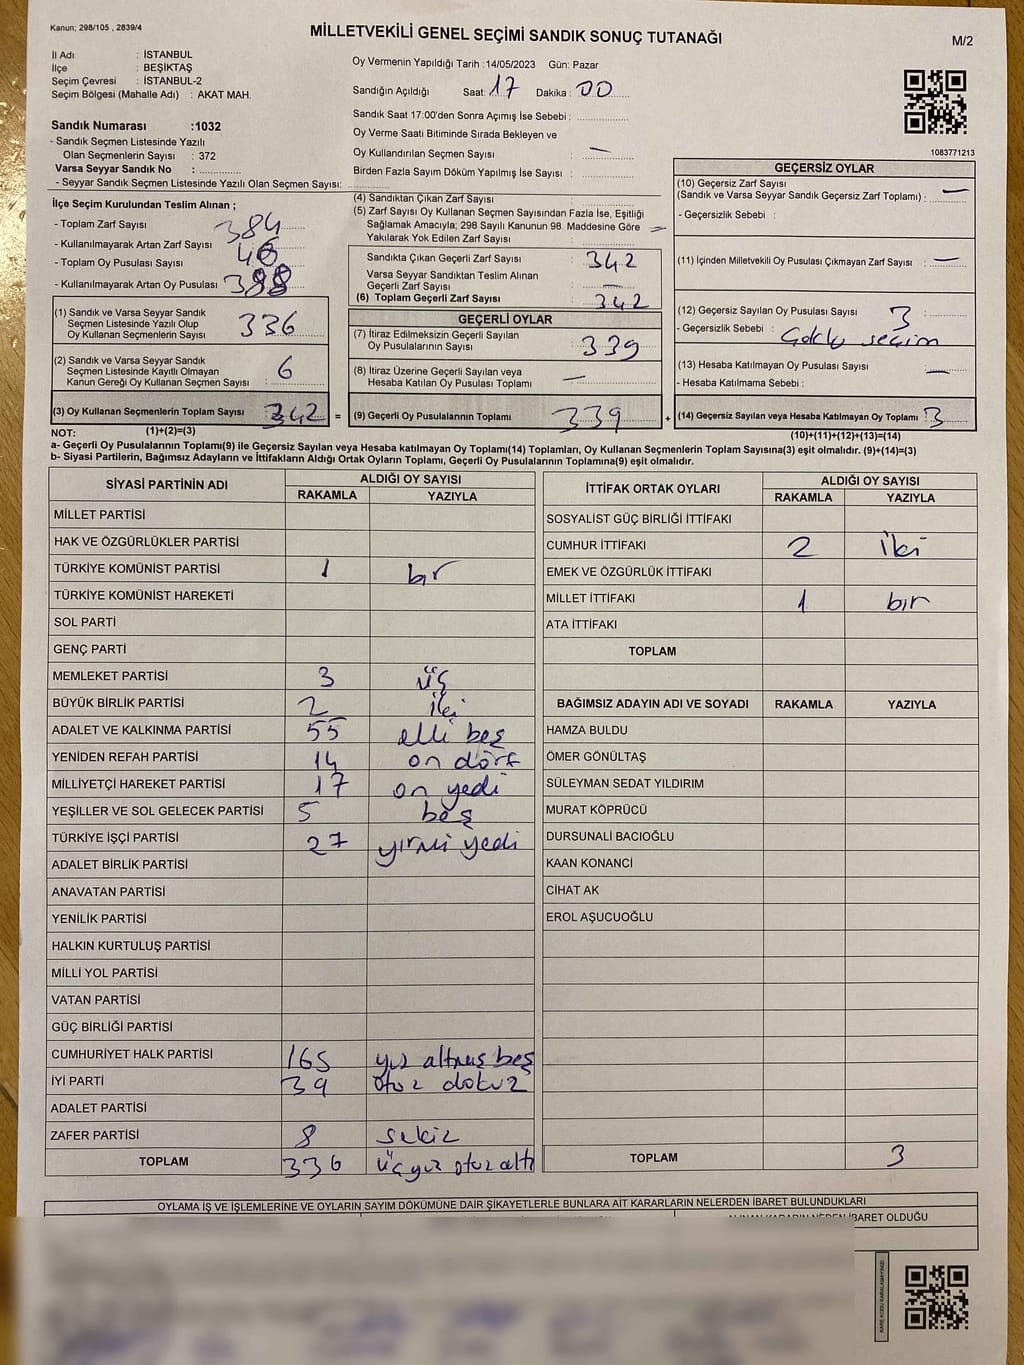 Kanun; 298/105 , 2839/4
MİLLETVEKİLİ GENEL SEÇİMİ SANDIK SONUÇ TUTANAĞI
M/2
İl Adı : İSTANBUL
İlçe : BEŞİKTAŞ
Seçim Çevresi : İSTANBUL-2
Seçim Bölgesi (Mahalle Adı) : AKAT MAH.
Sandık Numarası :1032
- Sandık Seçmen Listesinde Yazılı
Olan Seçmenlerin Sayısı : 372
Varsa Seyyar Sandık No :
- Seyyar Sandık Seçmen Listesinde Yazılı Olan Seçmen Sayısı:
Oy Vermenin Yapıldığı Tarih :14/05/2023 Gün: Pazar
Sandığın Açıldığı Saat: 17 Dakika : 00
Sandık Saat 17:00'den Sonra Açımış İse Sebebi :
Oy Verme Saati Bitiminde Sırada Bekleyen ve
Oy Kullandırılan Seçmen Sayısı : —
Birden Fazla Sayım Döküm Yapılmış İse Sayısı :
1083771213
İlçe Seçim Kurulundan Teslim Alınan ;
- Toplam Zarf Sayısı : 384
- Kullanılmayarak Artan Zarf Sayısı :
- Toplam Oy Pusulası Sayısı :
- Kullanılmayarak Artan Oy Pusulası :
(1) Sandık ve Varsa Seyyar Sandık
Seçmen Listesinde Yazılı Olup
Oy Kullanan Seçmenlerin Sayısı : 336
(2) Sandık ve Varsa Seyyar Sandık
Seçmen Listesinde Kayıtlı Olmayan
Kanun Gereği Oy Kullanan Seçmen Sayısı : 6
(3) Oy Kullanan Seçmenlerin Toplam Sayısı : 342 =
(1)+(2)=(3)
(4) Sandıktan Çıkan Zarf Sayısı :
(5) Zarf Sayısı Oy Kullanan Seçmen Sayısından Fazla İse, Eşitliği
Sağlamak Amacıyla; 298 Sayılı Kanunun 98. Maddesine Göre
Yakılarak Yok Edilen Zarf Sayısı : —
Sandıkta Çıkan Geçerli Zarf Sayısı : 342
Varsa Seyyar Sandıktan Teslim Alınan
Geçerli Zarf Sayısı : —
(6) Toplam Geçerli Zarf Sayısı : 342
GEÇERLİ OYLAR
(7) İtiraz Edilmeksizin Geçerli Sayılan
Oy Pusulalarının Sayısı : 339
(8) İtiraz Üzerine Geçerli Sayılan veya
Hesaba Katılan Oy Pusulası Toplamı : —
(9) Geçerli Oy Pusulalarının Toplamı : 339 +
GEÇERSİZ OYLAR
(10) Geçersiz Zarf Sayısı
(Sandık ve Varsa Seyyar Sandık Geçersiz Zarf Toplamı) : —
- Geçersizlik Sebebi :
(11) İçinden Milletvekili Oy Pusulası Çıkmayan Zarf Sayısı : —
(12) Geçersiz Sayılan Oy Pusulası Sayısı : 3
- Geçersizlik Sebebi : seçim
(13) Hesaba Katılmayan Oy Pusulası Sayısı : —
- Hesaba Katılmama Sebebi :
(14) Geçersiz Sayılan veya Hesaba Katılmayan Oy Toplamı : 3
(10)+(11)+(12)+(13)=(14)
NOT:
a- Geçerli Oy Pusulalarının Toplamı(9) ile Geçersiz Sayılan veya Hesaba katılmayan Oy Toplamı(14) Toplamları, Oy Kullanan Seçmenlerin Toplam Sayısına(3) eşit olmalıdır. (9)+(14)=(3)
b- Siyasi Partilerin, Bağımsız Adayların ve İttifakların Aldığı Ortak Oyların Toplamı, Geçerli Oy Pusulalarının Toplamına(9) eşit olmalıdır.
SİYASİ PARTİNİN ADI ALDIĞI OY SAYISI
RAKAMLA YAZIYLA
MİLLET PARTİSİ
HAK VE ÖZGÜRLÜKLER PARTİSİ
TÜRKİYE KOMÜNİST PARTİSİ 1 bir
TÜRKİYE KOMÜNİST HAREKETİ
SOL PARTİ
GENÇ PARTİ
MEMLEKET PARTİSİ 3 üç
BÜYÜK BİRLİK PARTİSİ 2 iki
ADALET VE KALKINMA PARTİSİ 55 elli beş
YENİDEN REFAH PARTİSİ 14 on dört
MİLLİYETÇİ HAREKET PARTİSİ 17 on yedi
YEŞİLLER VE SOL GELECEK PARTİSİ 5 beş
TÜRKİYE İŞÇİ PARTİSİ 27 yirmi yedi
ADALET BİRLİK PARTİSİ
ANAVATAN PARTİSİ
YENİLİK PARTİSİ
HALKIN KURTULUŞ PARTİSİ
MİLLİ YOL PARTİSİ
VATAN PARTİSİ
GÜÇ BİRLİĞİ PARTİSİ
CUMHURİYET HALK PARTİSİ 165 yüz altmış beş
İYİ PARTİ 39 otuz dokuz
ADALET PARTİSİ
ZAFER PARTİSİ 8 sekiz
TOPLAM 336 üçyüz otuz altı
İTTİFAK ORTAK OYLARI ALDIĞI OY SAYISI
RAKAMLA YAZIYLA
SOSYALİST GÜÇ BİRLİĞİ İTTİFAKI
CUMHUR İTTİFAKI 2 iki
EMEK VE ÖZGÜRLÜK İTTİFAKI
MİLLET İTTİFAKI 1 bir
ATA İTTİFAKI
TOPLAM
BAĞIMSIZ ADAYIN ADI VE SOYADI RAKAMLA YAZIYLA
HAMZA BULDU
ÖMER GÖNÜLTAŞ
SÜLEYMAN SEDAT YILDIRIM
MURAT KÖPRÜCÜ
DURSUNALİ BACIOĞLU
KAAN KONANCİ
CİHAT AK
EROL AŞUCUOĞLU
TOPLAM 3
OYLAMA İŞ VE İŞLEMLERİNE VE OYLARIN SAYIM DÖKÜMÜNE DAİR ŞİKAYETLERLE BUNLARA AİT KARARLARIN NELERDEN İBARET BULUNDUKLARI
ALINAN KARARIN NEDEN İBARET OLDUĞU
KARE KODU KARALAMAYINIZ!